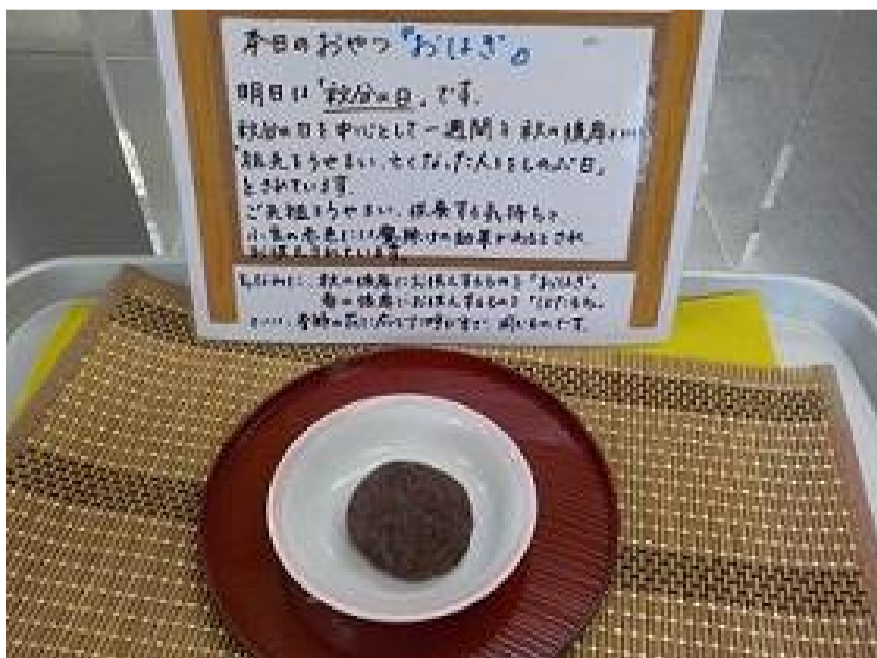 本日のおやつ『おはぎ』。
明日は「秋分の日」です。
秋分の日を中心として一週間を秋の彼岸といい
「祖先をうやまい、亡くなった人をしのぶ日」
とされています。
ご先祖をうやまい、供養する気持ちと
小豆の赤色には魔除けの効果があるとされ
お供えされています。
ちなみに、秋の彼岸にお供えするものを『おはぎ』。
春の彼岸にお供えするものを『ぼたもち』
といい、季節の花に応じて呼び方で、同じものです。